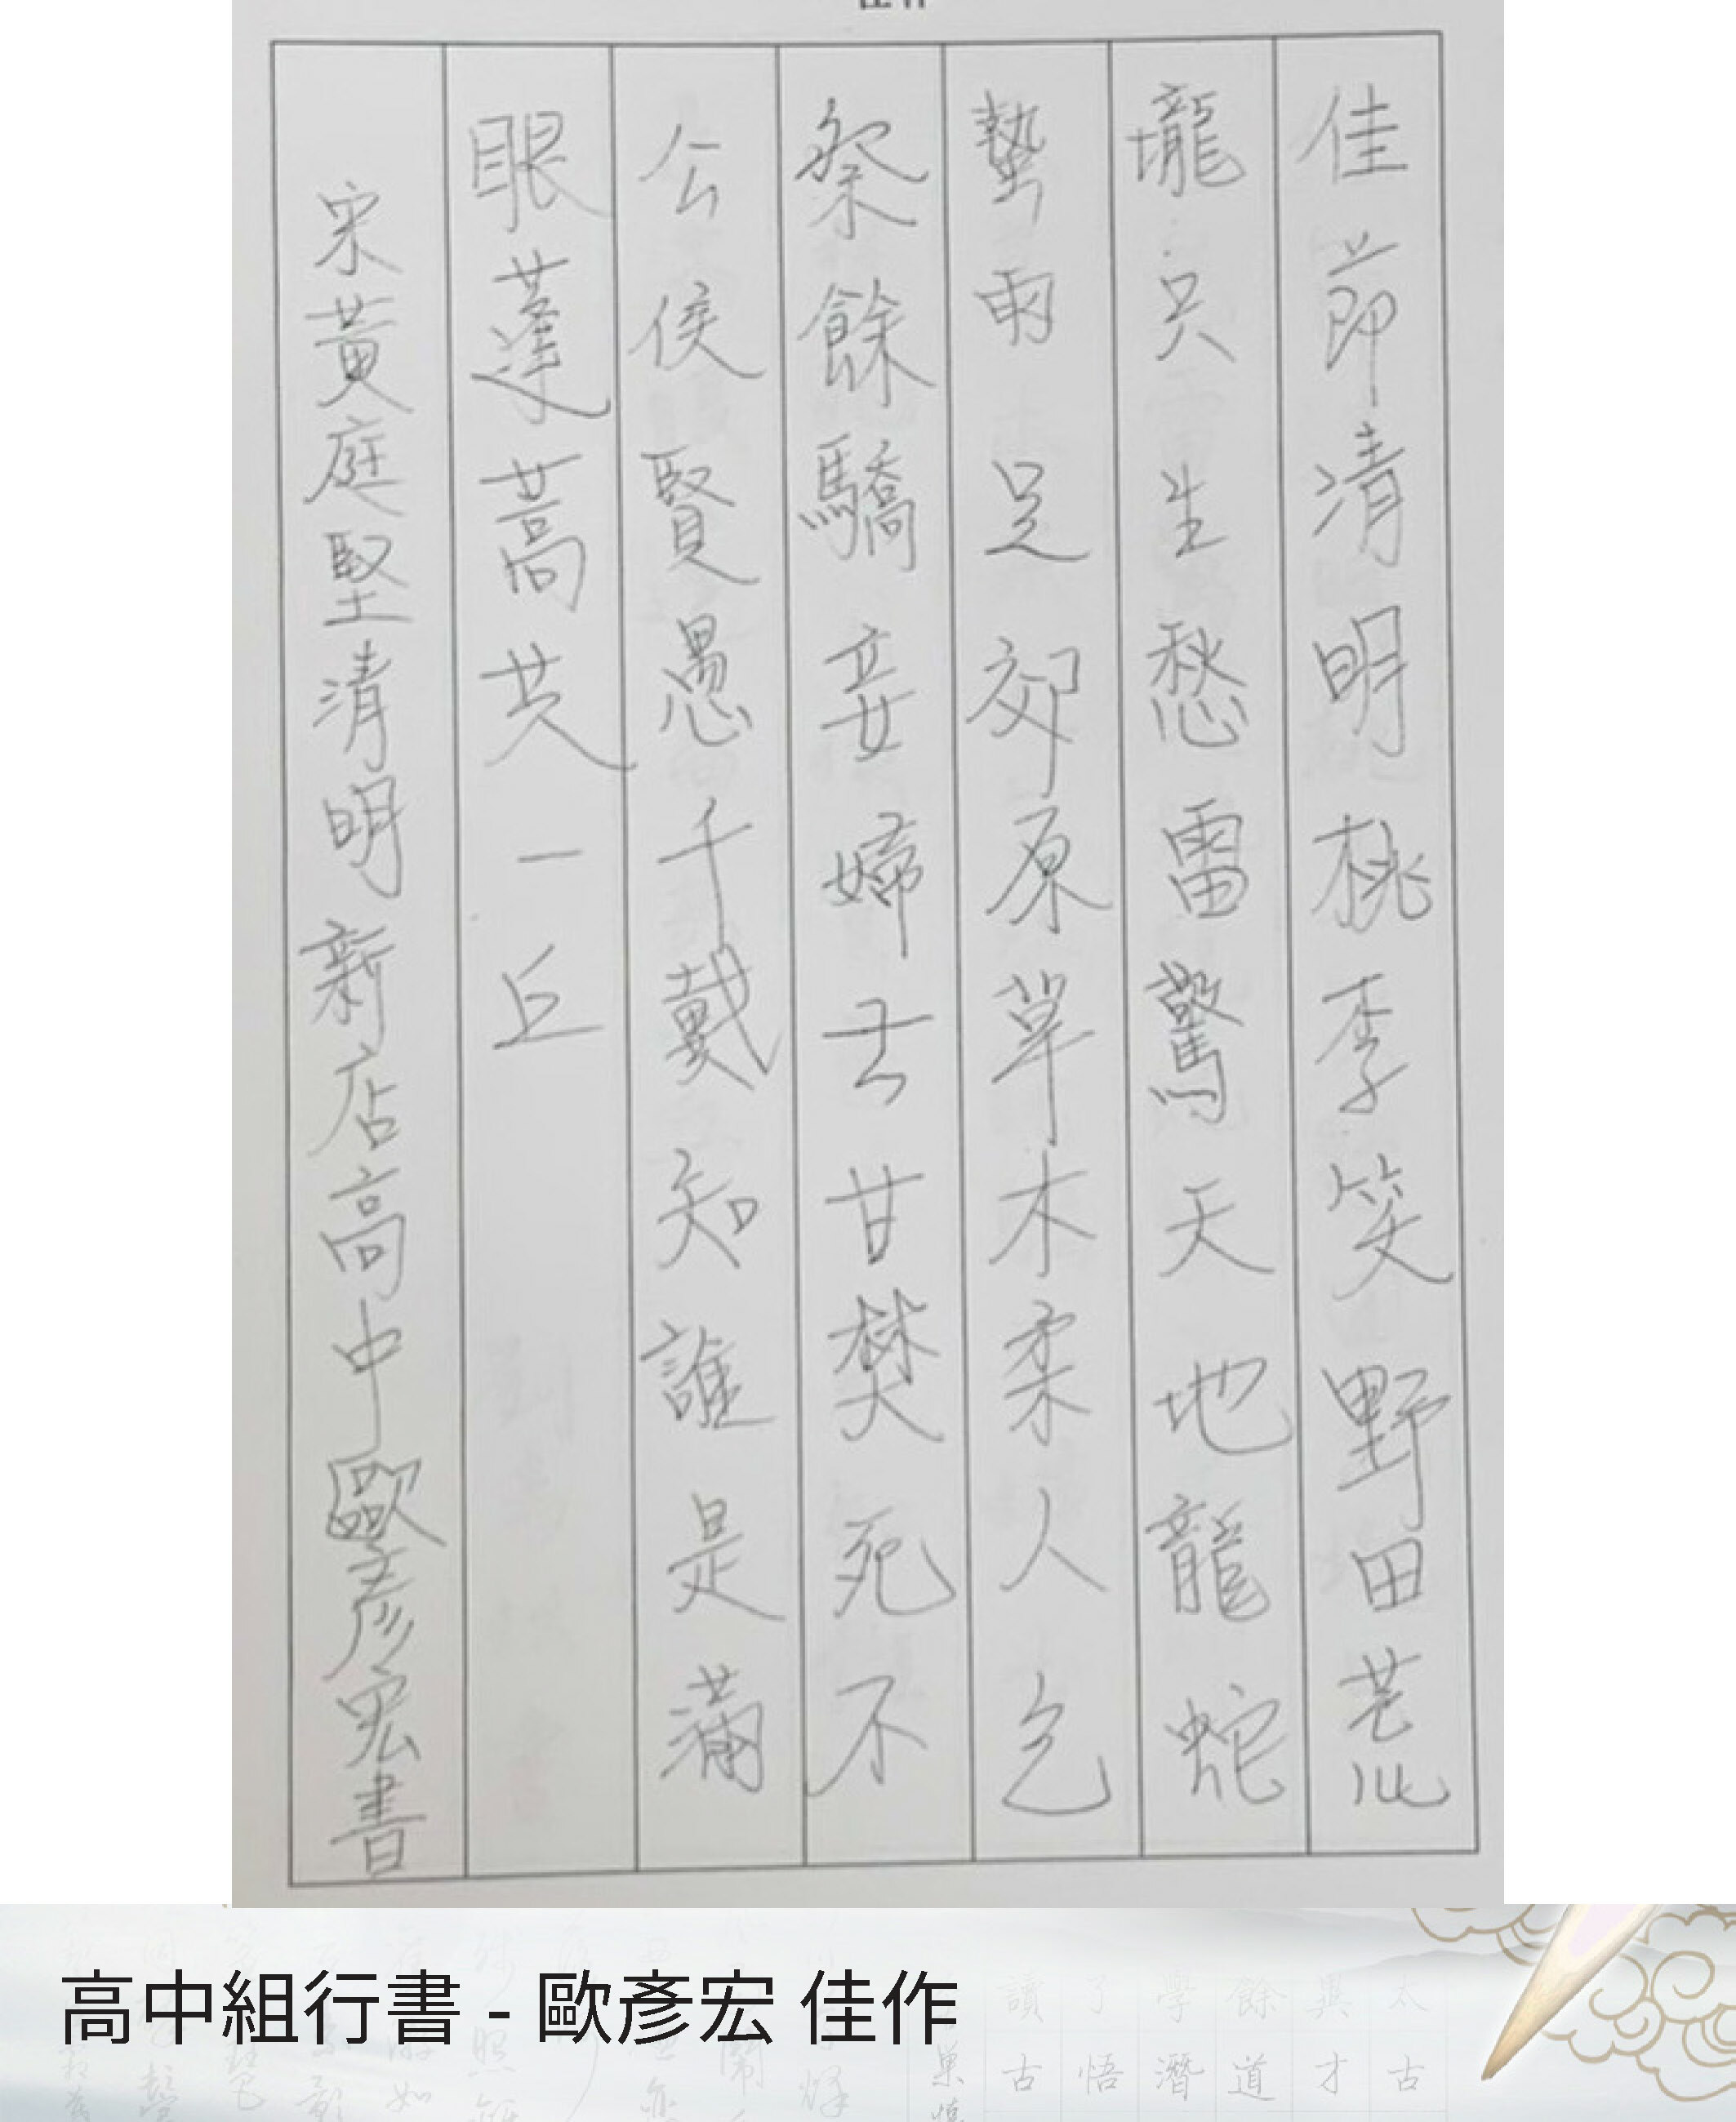 佳節清明桃李笑野田荒壠
壠只生愁雷驚天地龍蛇
蟄雨足郊原草木柔人乞
祭餘驕妾婦士甘焚死不
公侯賢愚千戴知誰是滿
眼蓬蒿共一丘
宋黃庭堅清明新店高中歐彥宏書
高中組行書 - 歐彥宏 佳作